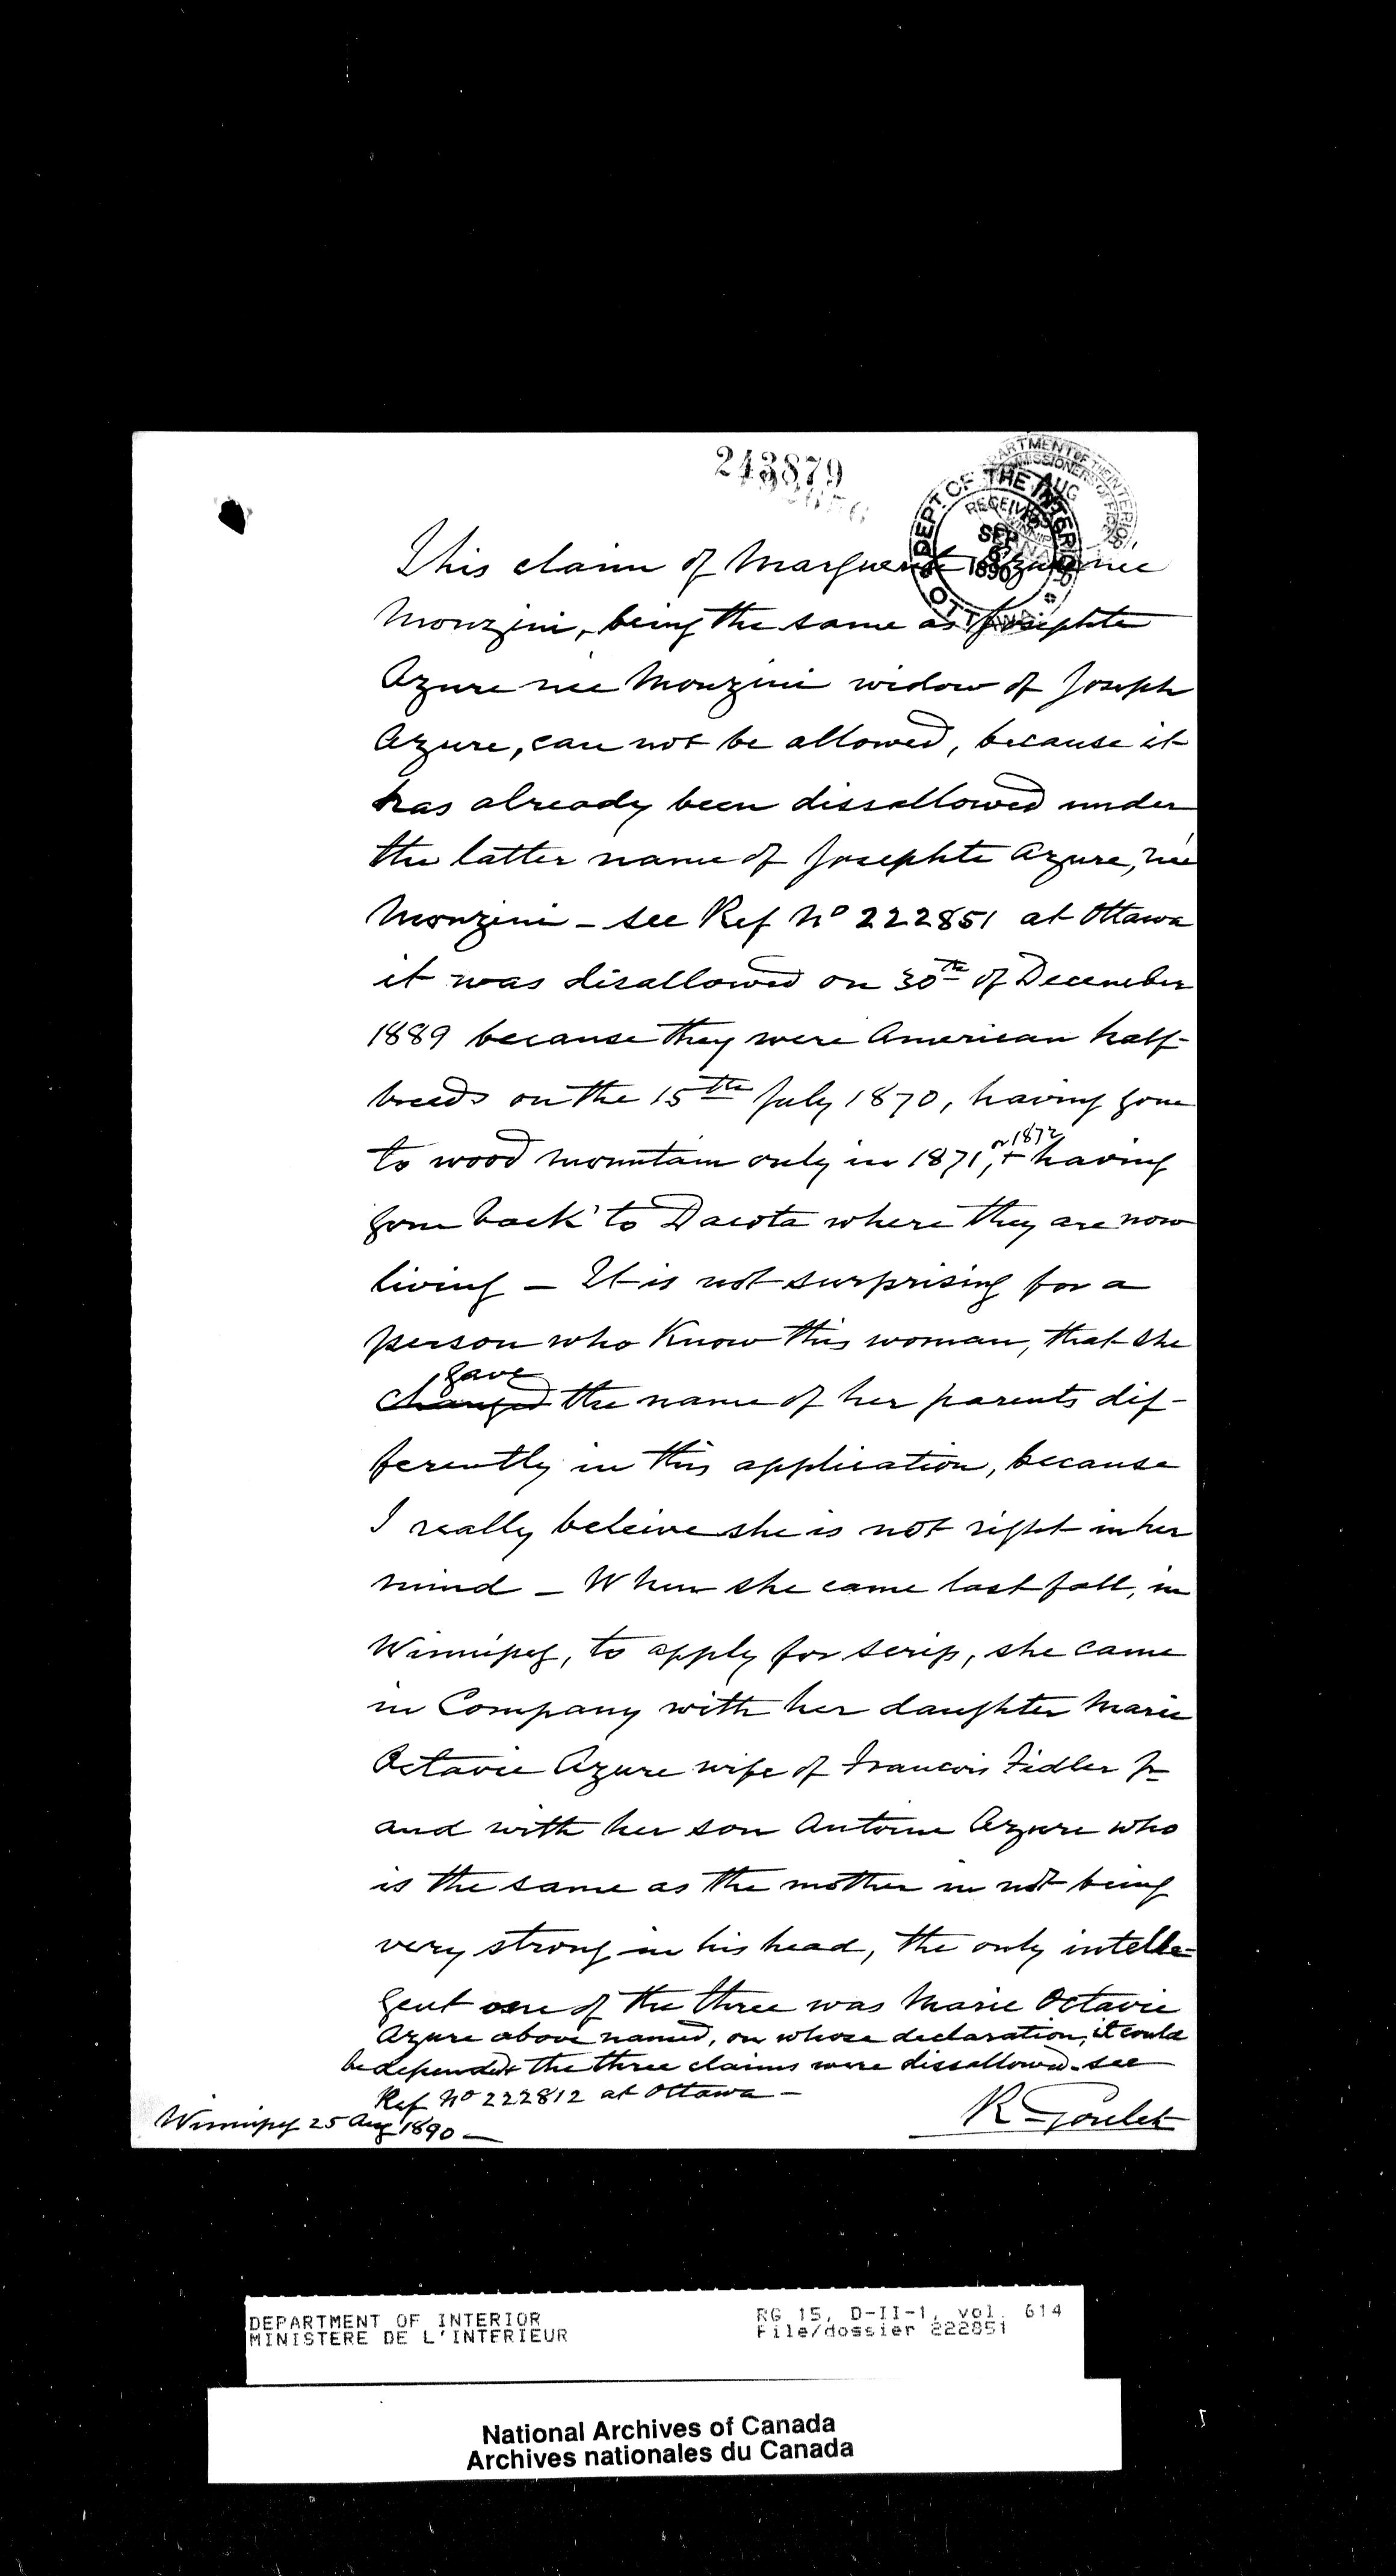 243879
DEPT. OF THE INTERIOR
RECEIVED
SEP
1890
OTTAWA
AUG
This claim of Marguerite Azure nee
Monzini, being the same as Josephte
Azure nee Monzini widow of Joseph
Azure, can not be allowed, because it
has already been dissallowed under
the latter name of Josephte Azure, née
Monzini - see Ref No 222851 at Ottawa
it was disallowed on 30th of December
1889 because they were American half-
breeds on the 15th July 1870, having gone
to wood mountain only in 1871, or 1872 + having
gone back to Dacota where they are now
living - It is not surprising for a
person who Know this woman, that she
changed gave the name of her parents dif-
ferently in this application, because
I really beleive she is not right in her
mind - When she came last fall, in
Winnipeg, to apply for scrip, she came
in Company with her daughter Marie
Octavie Azure wife of Francois Fidler Jr
and with her son Antoine Azure who
is the same as the mother in not being
very strong in his head, the only intelle=
gent one of the three was Marie Octavie
Azure above named, on whose declaration, it could
be depended the three claims were dissallowed - see
Ref No 222812 at Ottawa -
Winnipeg 25 Aug 1890 -
R Goulet
DEPARTMENT OF INTERIOR
MINISTERE DE L'INTERIEUR
RG 15, D-II-1, vol. 614
File/dossier 222851
National Archives of Canada
Archives nationales du Canada